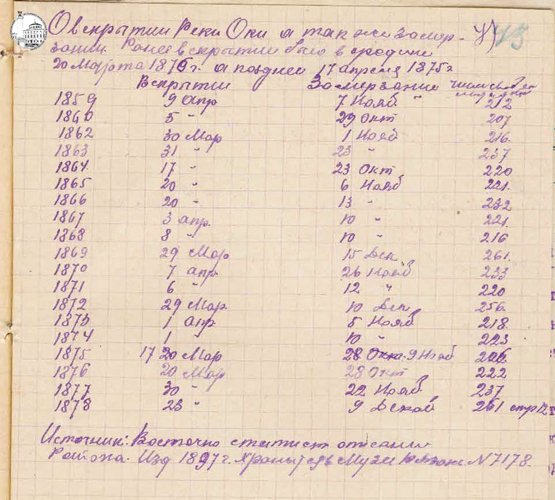 О вскрытии Реки Оки а так же Замер-
зании. Ранее вскрытии было в средине
20 Марта 1876г. а позднее 17 апреля 1875г
Вскрытии Замерзание число
1859 9 апр 7 Нояб " 212
1860 5 " 29 Окт 207
1862 30 Мар 1 Нояб 216
1863 31 " 23 " 237
1864 17 " 23 Окт 220
1865 20 " 6 Нояб 221
1866 20 " 13 " 232
1867 3 апр 10 " 221
1868 8 " 10 " 216
1869 29 Мар 15 Дек 261
1870 7 апр 26 Нояб 233
1871 6 " 12 " 220
1872 29 Мар 10 Дек 256
1873 1 апр 5 Нояб 218
1874 1 " 10 " 223
1875 17 20 Мар 28 Окт-9 Нояб
1876 20 Мар 28 Окт 222
1877 30 " 22 Нояб 237
1878 23 " 9 Декаб 261 стр 12
Источник: Восточно статист описании
Района. Изд 1897г. Музеи Рязани N 7178.